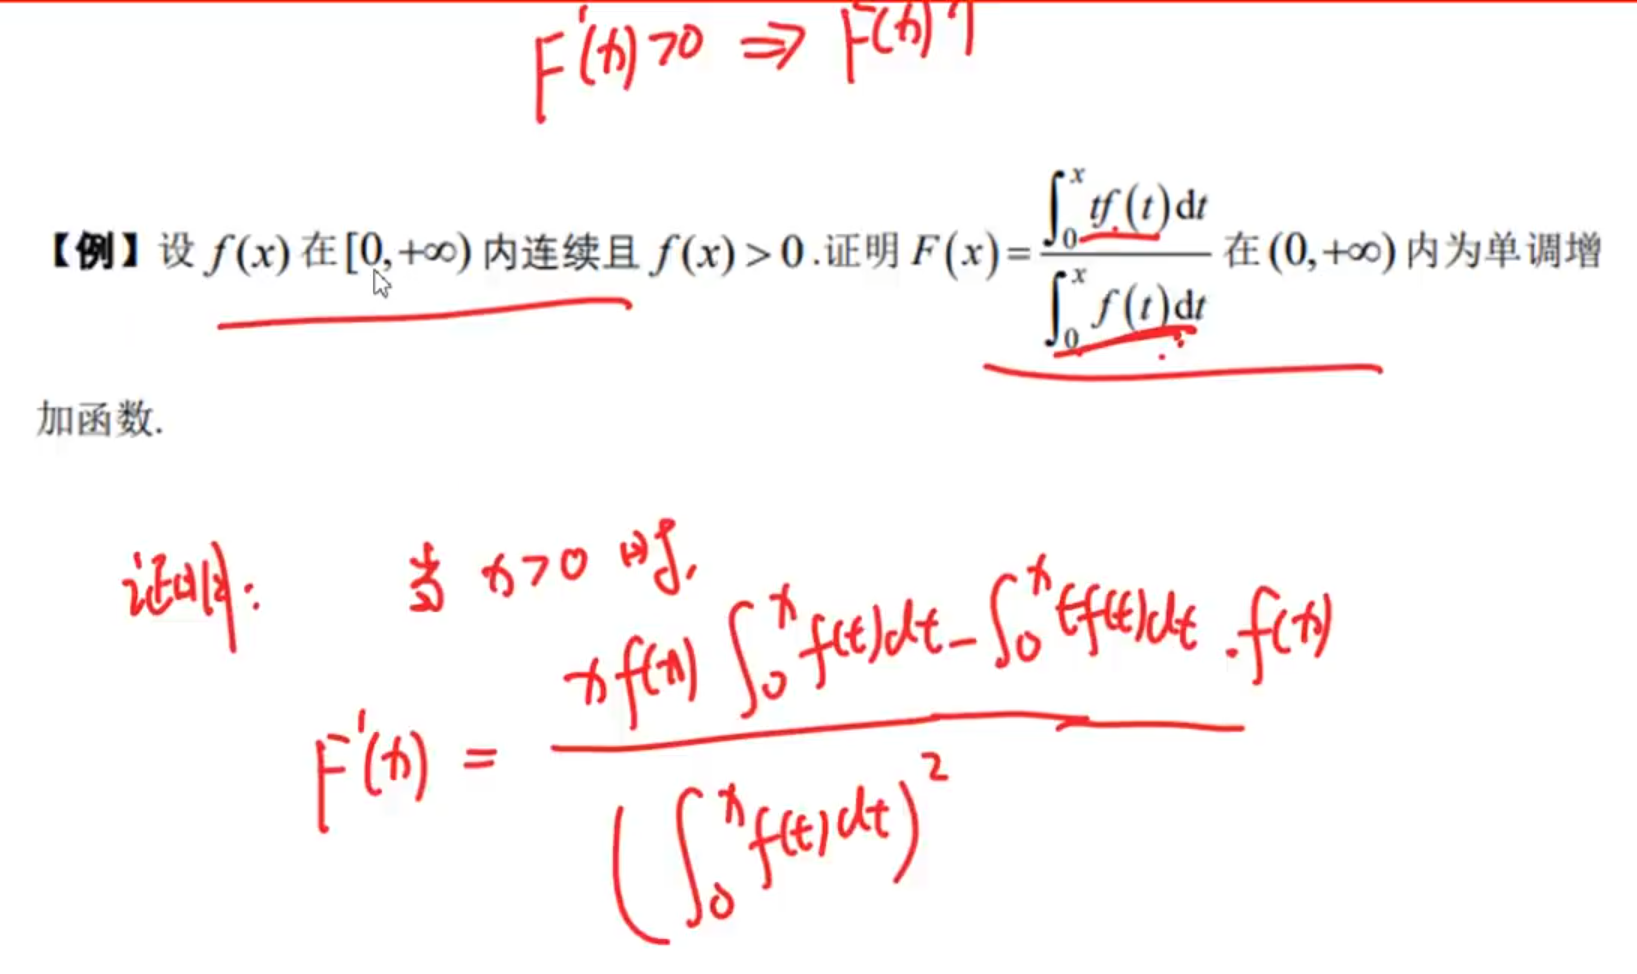 F'(x)>0 ⇒ F(x)↑
【例】设 f(x) 在 [0,+∞) 内连续且 f(x)>0.证明 F(x)=∫₀ˣ tf(t)dt / ∫₀ˣ f(t)dt 在 (0,+∞) 内为单调增
加函数.
证明: 当 x>0 时,
F'(x) = xf(x)∫₀ˣ f(t)dt - ∫₀ˣ tf(t)dt · f(x) / (∫₀ˣ f(t)dt)²